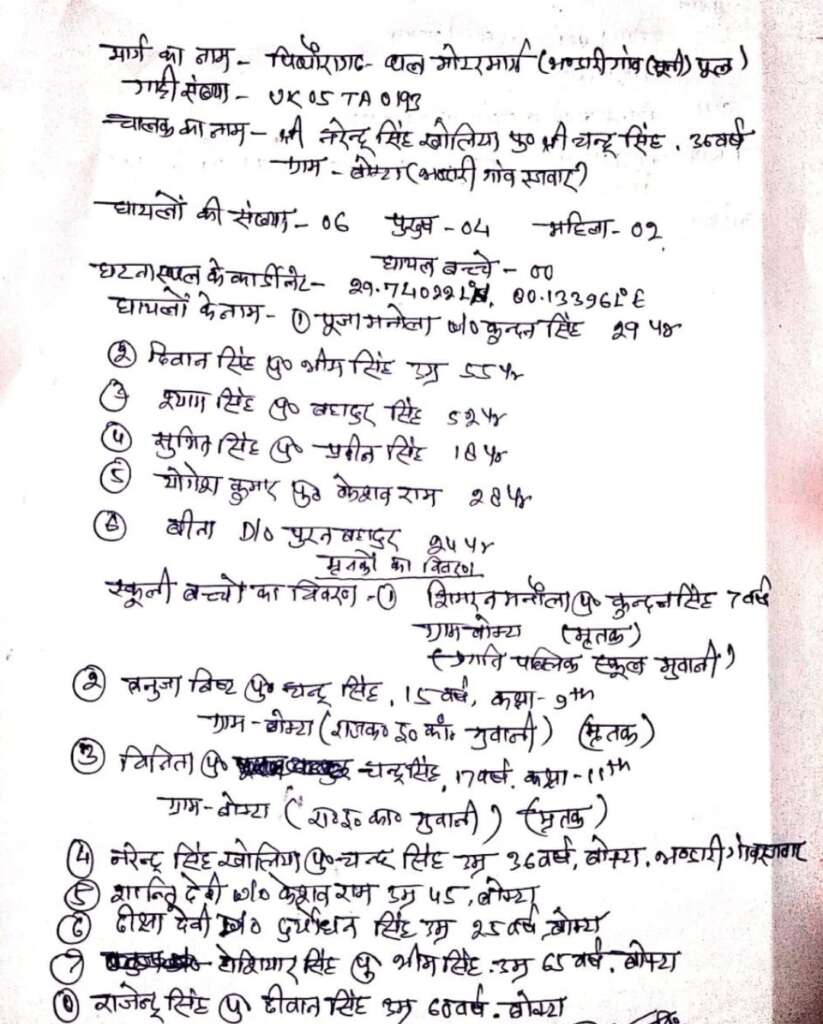 मार्ग का नाम - पिथौरागढ - थल मोटरमार्ग (भण्डारी गांव (सूनी) पूल)
गाड़ी संख्या - UK 05 TA 0193
चालक का नाम - श्री नरेन्द्र सिंह खोलिया पु० श्री चन्द्र सिंह, 36 वर्ष
ग्राम - बोक्टा (भण्डारी गांव
घायलों की संख्या - 06 पुरुष - 04 महिला - 02
घायल बच्चे - 00
घटनास्थल के कार्डीनेट - 29.740221°N, 80.133961°E
घायलों के नाम - ① पूजा मनोला w/o कुन्दन सिंह 29 yr
② दिवान सिंह पु० भीम सिंह उम्र 55 yr
③ श्याम सिंह पु० बहादुर सिंह 52 yr
④ सुमित सिंह पु० प्रवीन सिंह 18 yr
⑤ योगेश कुमार पु० केशव राम 28 yr
⑥ बीना D/o पुरन बहादुर 24 yr
मृतकों का विवरण
स्कूली बच्चों का विवरण - ① सिमरन मनौला पु० कुन्दन सिंह 7 वर्ष
ग्राम बोक्टा (मृतक)
(प्रगति पब्लिक स्कूल मुवानी)
② तनुजा बिष्ट पु० चन्द्र सिंह, 15 वर्ष, कक्षा - 9th
ग्राम - बोक्टा (राजक० इ० कॉ० मुवानी) (मृतक)
③ विनिता पु० चन्द्र सिंह, 17 वर्ष, कक्षा - 11th
ग्राम - बोक्टा (रा० इ० का० मुवानी) (मृतक)
④ नरेन्द्र सिंह खोलिया पु० चन्द्र सिंह उम्र 36 वर्ष, बोक्टा, भण्डारी गांव
⑤ शान्ति देवी w/o केशव राम उम्र 45, बोक्टा
⑥ दीक्षा देवी D/o दुर्योधन सिंह उम्र 25 वर्ष, बोक्टा
⑦ होशियार सिंह पु० भीम सिंह, उम्र 65 वर्ष, बोक्टा
⑧ राजेन्द्र सिंह पु० दीवान सिंह उम्र 60 वर्ष, बोक्टा